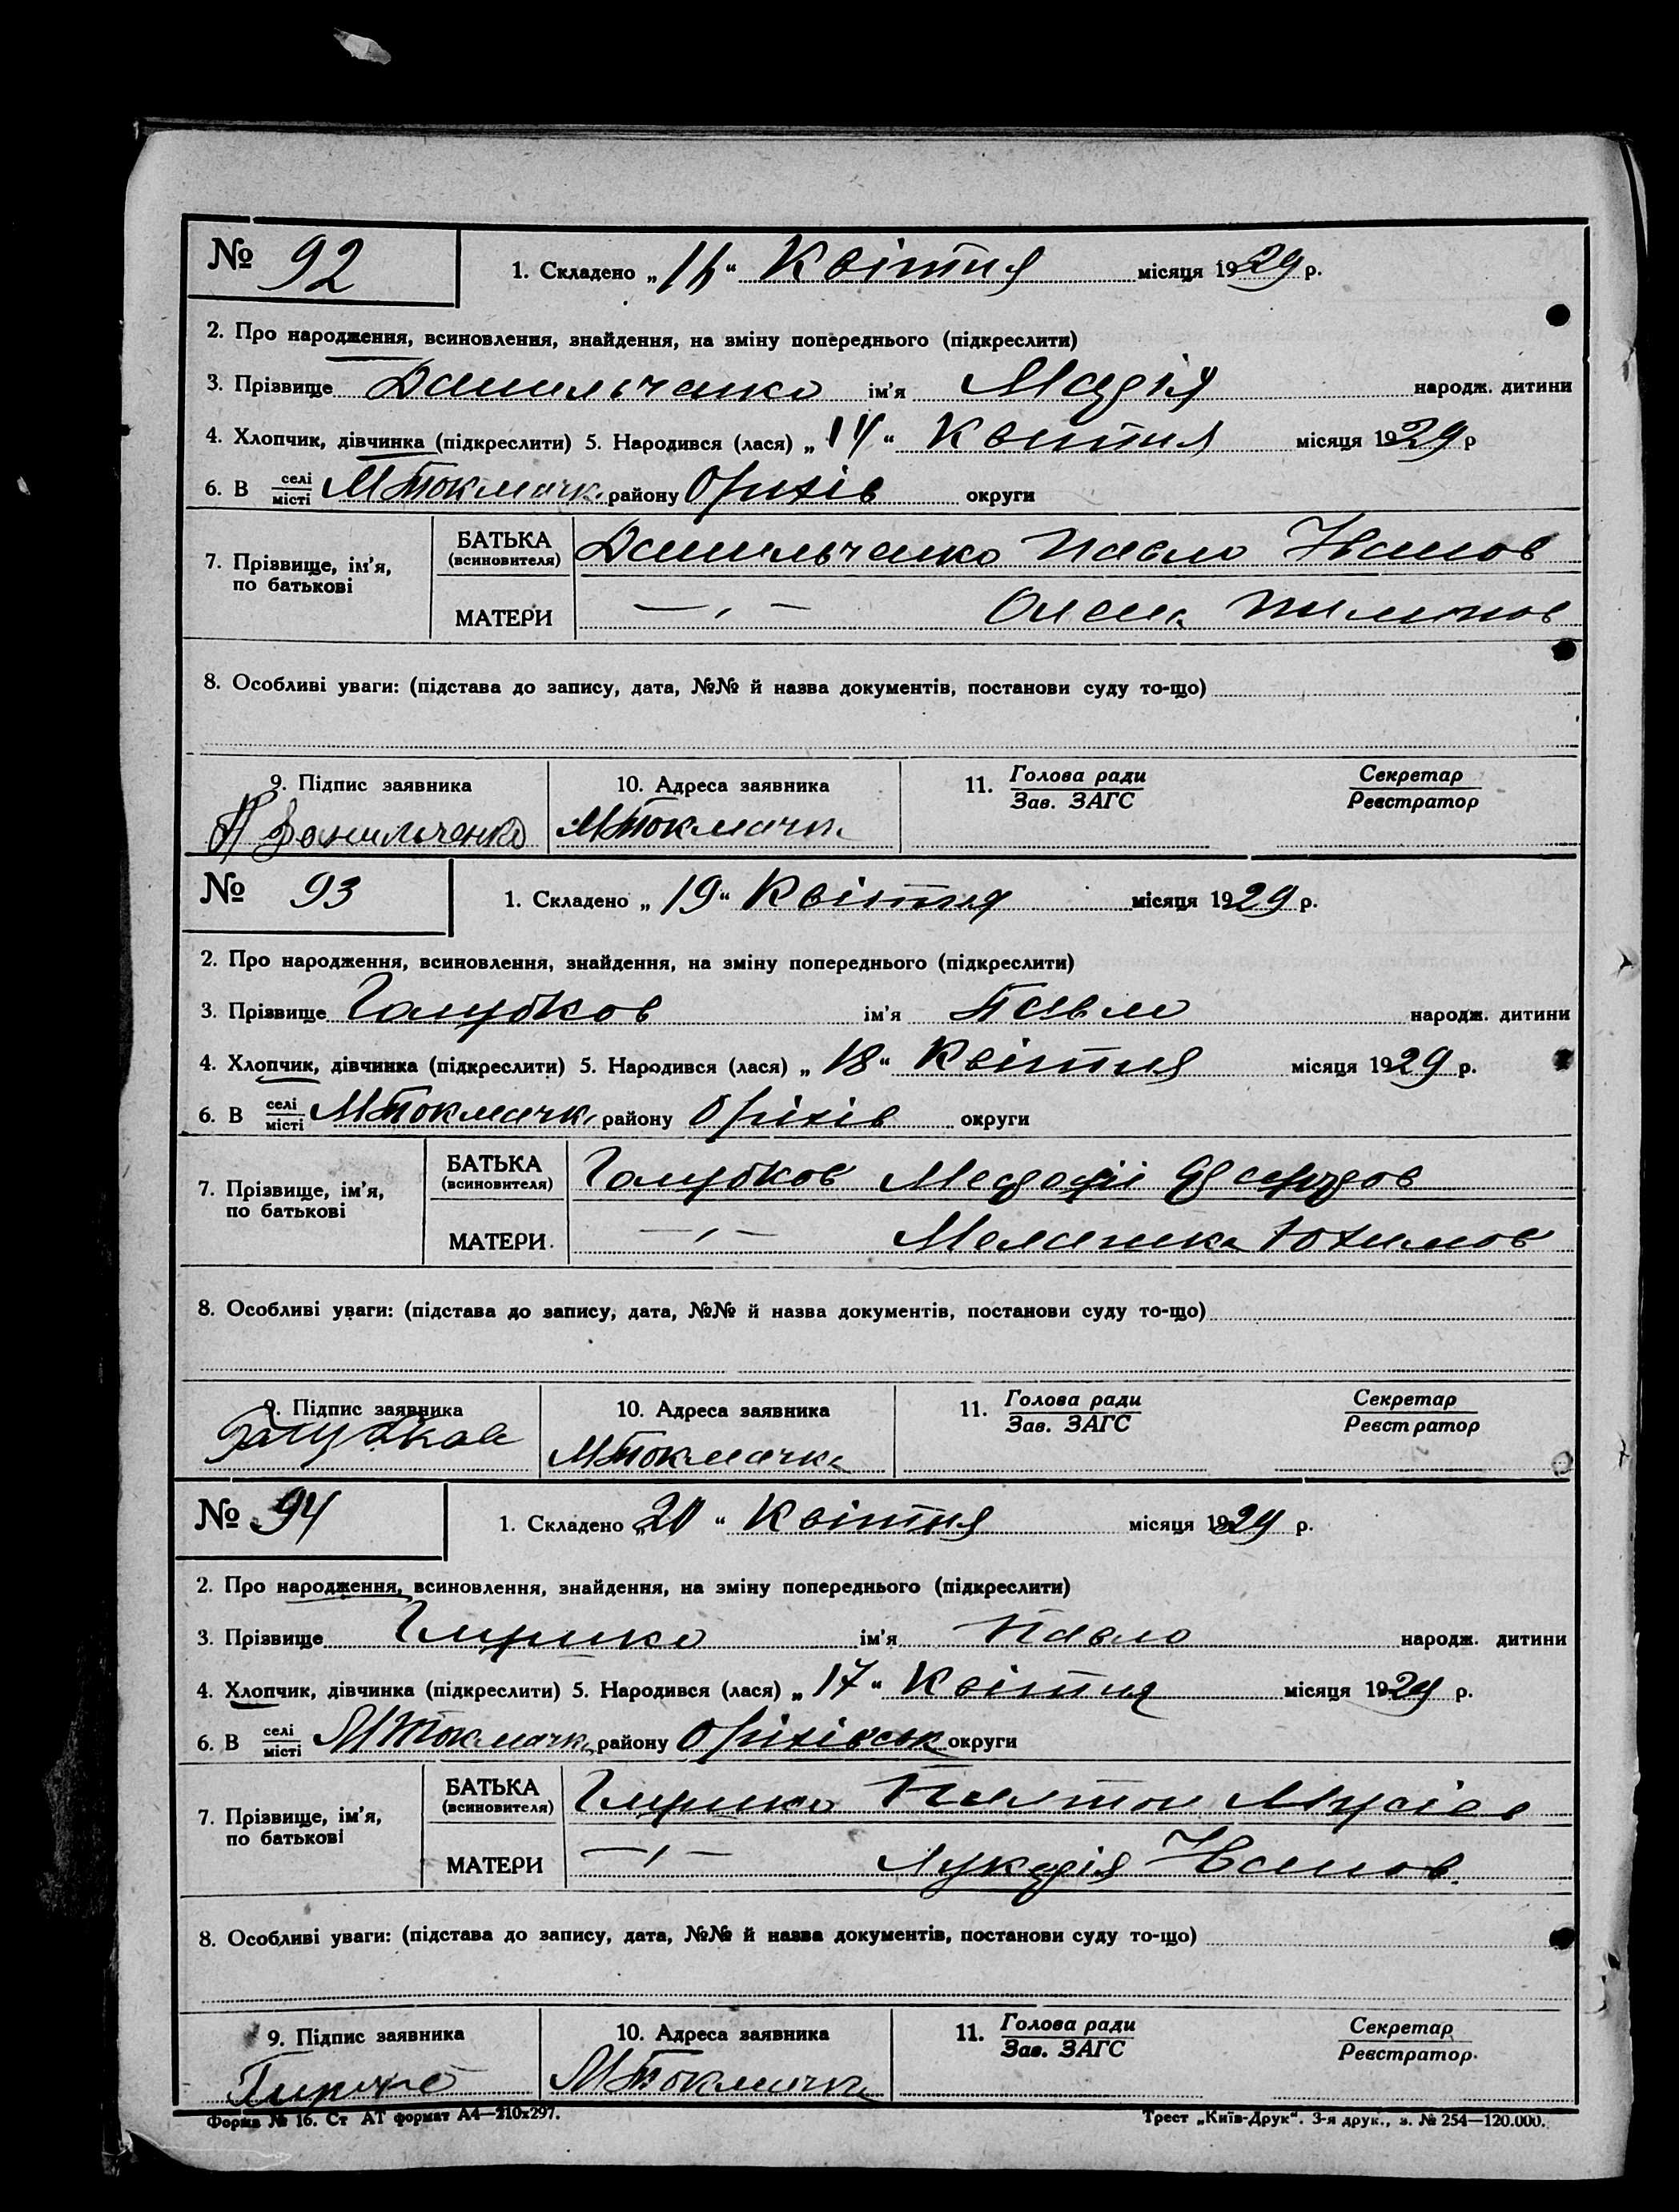 № 92 1. Складено „ “ Квітня місяця 1929 р.
2. Про народження, всиновлення, знайдення, на зміну попереднього (підкреслити)
3. Прізвище Данильченко ім'я Марія народж. дитини
4. Хлопчик, дівчинка (підкреслити) 5. Народився (лася) „14“ Квітня місяця 1929 р
6. В селі місті МТокмачка району Оріхів округи
7. Прізвище, ім'я, по батькові БАТЬКА (всиновителя) Данильченко Павло Иванов
МАТЕРИ —„— Олена Пилипов
8. Особливі уваги: (підстава до запису, дата, №№ й назва документів, постанови суду то-що)
9. Підпис заявника 10. Адреса заявника 11. Голова ради Зав. ЗАГС Секретар Реєстратор
П Данильченко МТокмачка
№ 93 1. Складено „19“ Квітня місяця 1929 р.
2. Про народження, всиновлення, знайдення, на зміну попереднього (підкреслити)
3. Прізвище Голубков ім'я Павло народж. дитини
4. Хлопчик, дівчинка (підкреслити) 5. Народився (лася) „18“ Квітня місяця 1929 р.
6. В селі місті МТокмачка району Оріхів округи
7. Прізвище, ім'я, по батькові БАТЬКА (всиновителя) Голубков
МАТЕРИ. —„— Меланка Юхимов
8. Особливі уваги: (підстава до запису, дата, №№ й назва документів, постанови суду то-що)
9. Підпис заявника 10. Адреса заявника 11. Голова ради Зав. ЗАГС Секретар Реєстратор
Голубков МТокмачка
№ 94 1. Складено „20“ Квітня місяця 1929 р.
2. Про народження, всиновлення, знайдення, на зміну попереднього (підкреслити)
3. Прізвище ім'я Павло народж. дитини
4. Хлопчик, дівчинка (підкреслити) 5. Народився (лася) „17“ Квітня місяця 1929 р.
6. В селі місті МТокмачка району Оріхівськ округи
7. Прізвище, ім'я, по батькові БАТЬКА (всиновителя) Платон Мусієв
МАТЕРИ —„— Лукерія Иванов.
8. Особливі уваги: (підстава до запису, дата, №№ й назва документів, постанови суду то-що)
9. Підпис заявника 10. Адреса заявника 11. Голова ради Зав. ЗАГС Секретар Реєстратор.
МТокмачка
Форма № 16. Ст АТ формат А4—210х297. Трест „Київ-Друк“. 3-я друк., з. № 254—120.000.